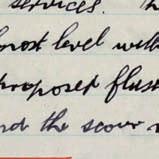 services. Th
most level with
proposed flush
nd the scour